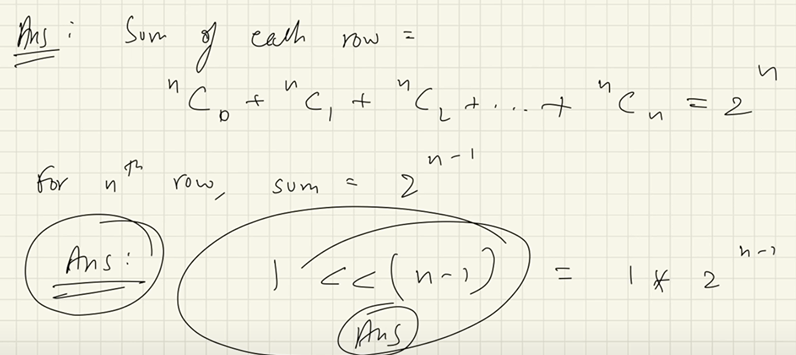 Ans : Sum of each row =
ⁿC₀ + ⁿC₁ + ⁿC₂ + ... + ⁿCₙ = 2ⁿ
For nᵗʰ row, sum = 2ⁿ⁻¹
Ans : 1 << (n-1) = 1 * 2ⁿ⁻¹
Ans